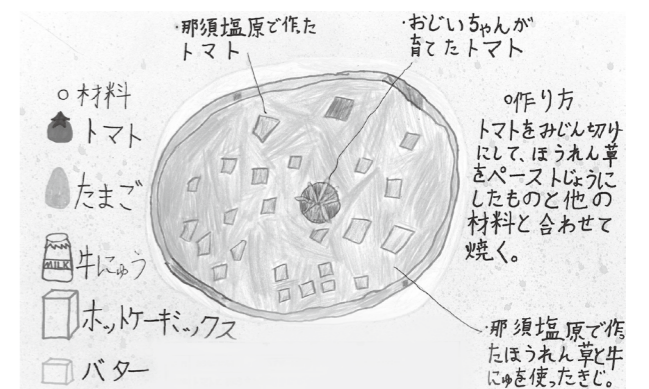 ・那須塩原で作た
トマト
・おじいちゃんが
育てたトマト
○材料
トマト
たまご
MILK
牛にゅう
ホットケーキミックス
バター
○作り方
トマトをみじん切り
にして、ほうれん草
をペーストじょうに
したものと他の
材料と合わせて
焼く。
・那須塩原で作っ
たほうれん草と牛
にゅを使ったきじ。